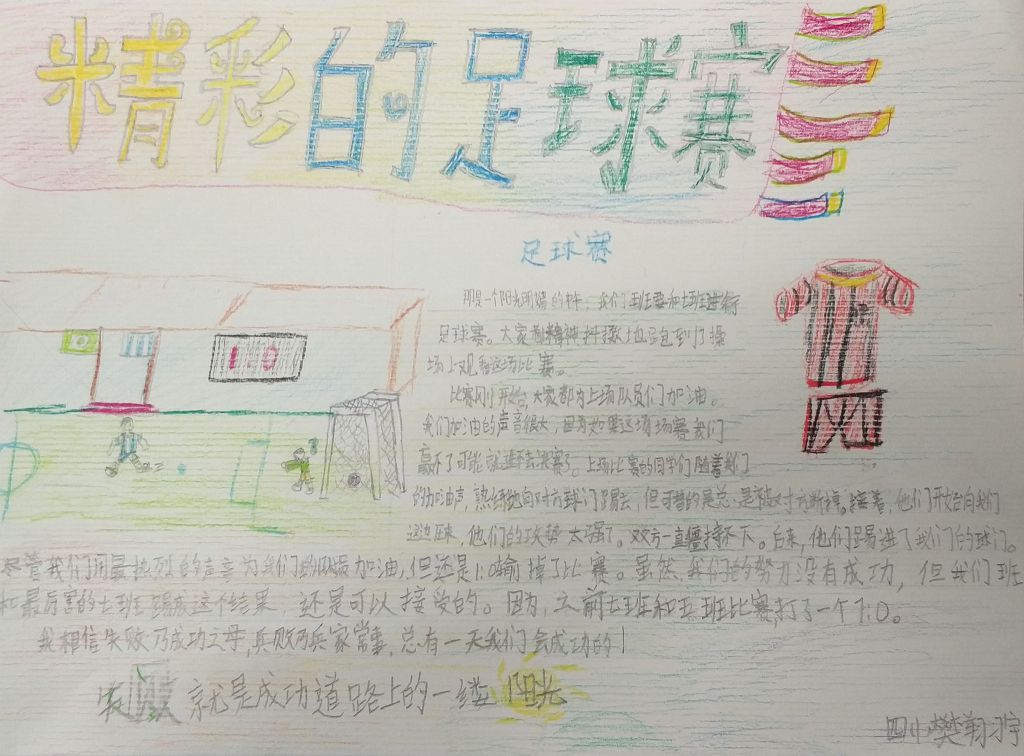 精彩的足球赛
足球赛
1 0
那是一个阳光明媚的 我们 班要和 班进行
足球赛。大家都精神抖擞地跑到了操
场上观看这场比赛。
比赛刚开始,大家都为上场队员们加油。
我们加油的声音很大,因为如果这场 赛我们
赢不了可能就进不去决赛了。上场比赛的同学们随着我们
的加油声,热 地向对方球门踢去,但可惜的是总是被对方断掉。接着,他们开始向我们
这边 球,他们的攻势太强了。双方一直僵持不下。后来,他们踢进了我们的球门。
尽管我们用最热烈的声音为我们的队员加油,但还是1:0输掉了比赛。虽然,我们的努力没有成功,但我们班
和最厉害的七班踢成这个结果,还是可以接受的。因为,之前七班和五班比赛,打了一个7:0。
我相信失败乃成功之母,兵败乃兵家常事,总有一天我们会成功的!
失败就是成功道路上的一缕阳光
四小樊翔宇